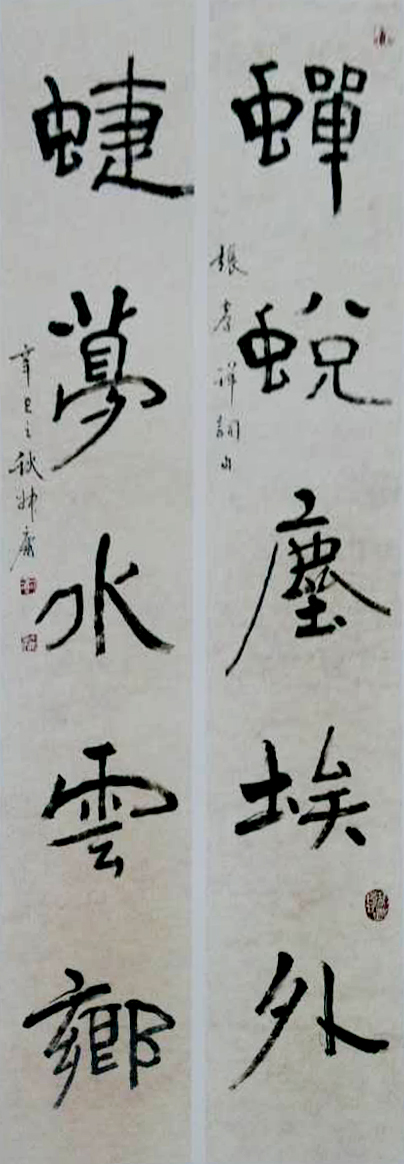 蟬蛻塵埃外
張孝祥詞句
蜨夢水雲鄉
辛巳之秋